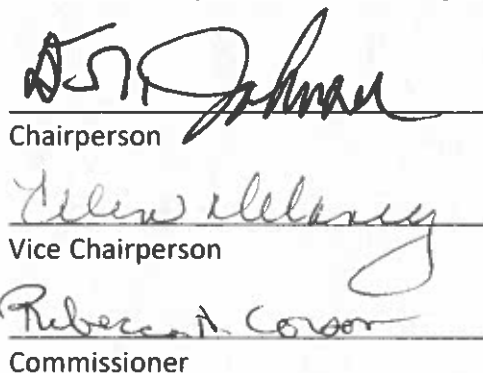 Johnson
Chairperson
Ellen Delaney
Vice Chairperson
Rebecca A. Corson
Commissioner